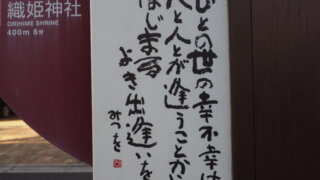 織姫神社
ORIHIME SHRINE
400m 6分
この世の幸不幸は
人と人とが逢うことから
はじまる
よき出逢いを
みつを